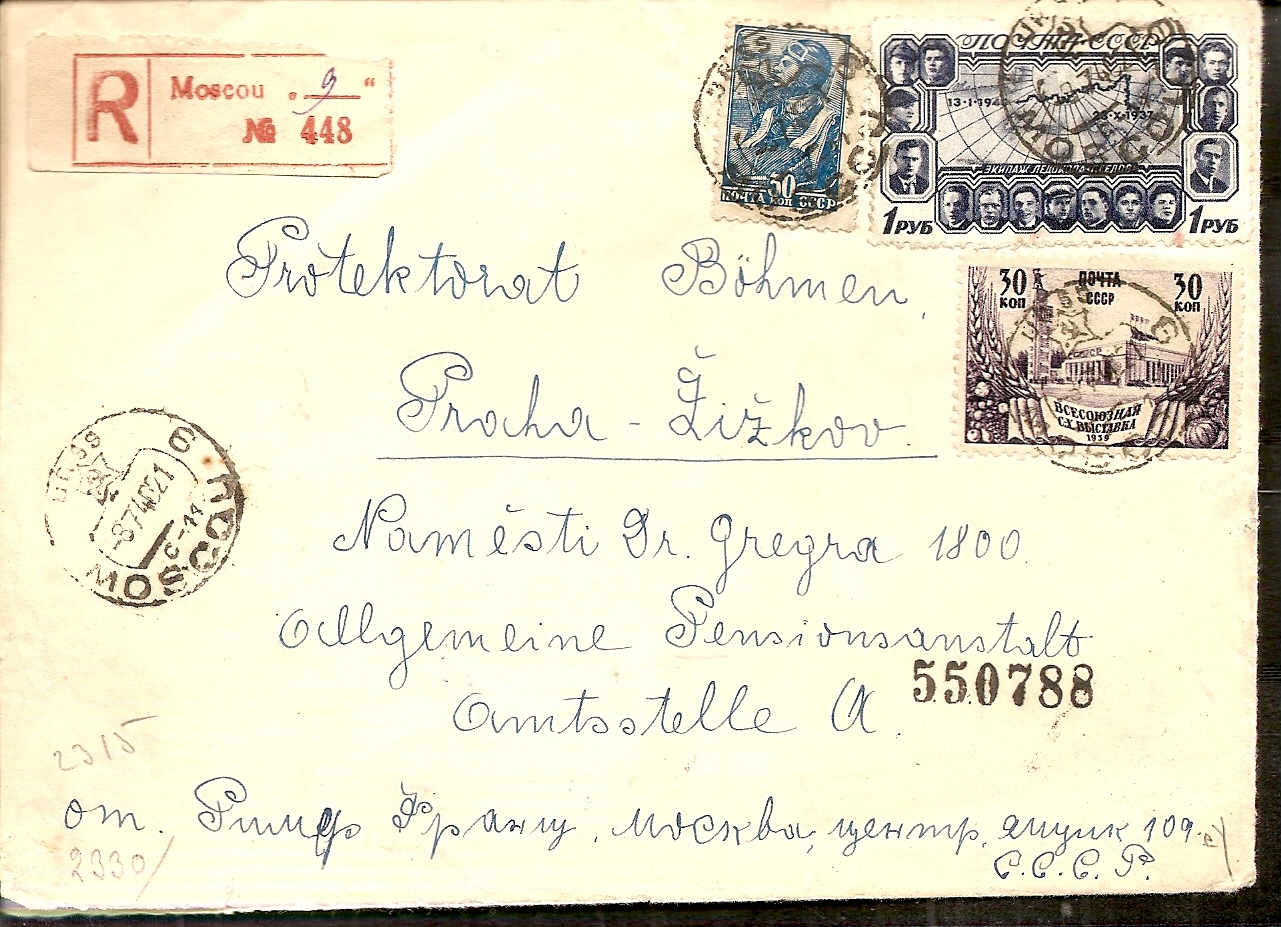 R Moscou „ 9 “
№ 448
50
ПОЧТА КОП СССР
ПОЧТА СССР
13·I·194
23·X·1937
ЭКИПАЖ ЛЕДОКОЛА
1 РУБ 1 РУБ
30 КОП ПОЧТА СССР 30 КОП
ВСЕСОЮЗНАЯ
С.Х. ВЫСТАВКА
1939
Protektorat Böhmen
Praha - Žižkov.
MOSCOW
-874021
Naměsti Dr. Gregra 1800
Allgemeine Pensionsanstalt
550788
Amtsstelle A
2315
от. Франц, Москва, центр, ящик 109
С.С.С.Р.
2330/